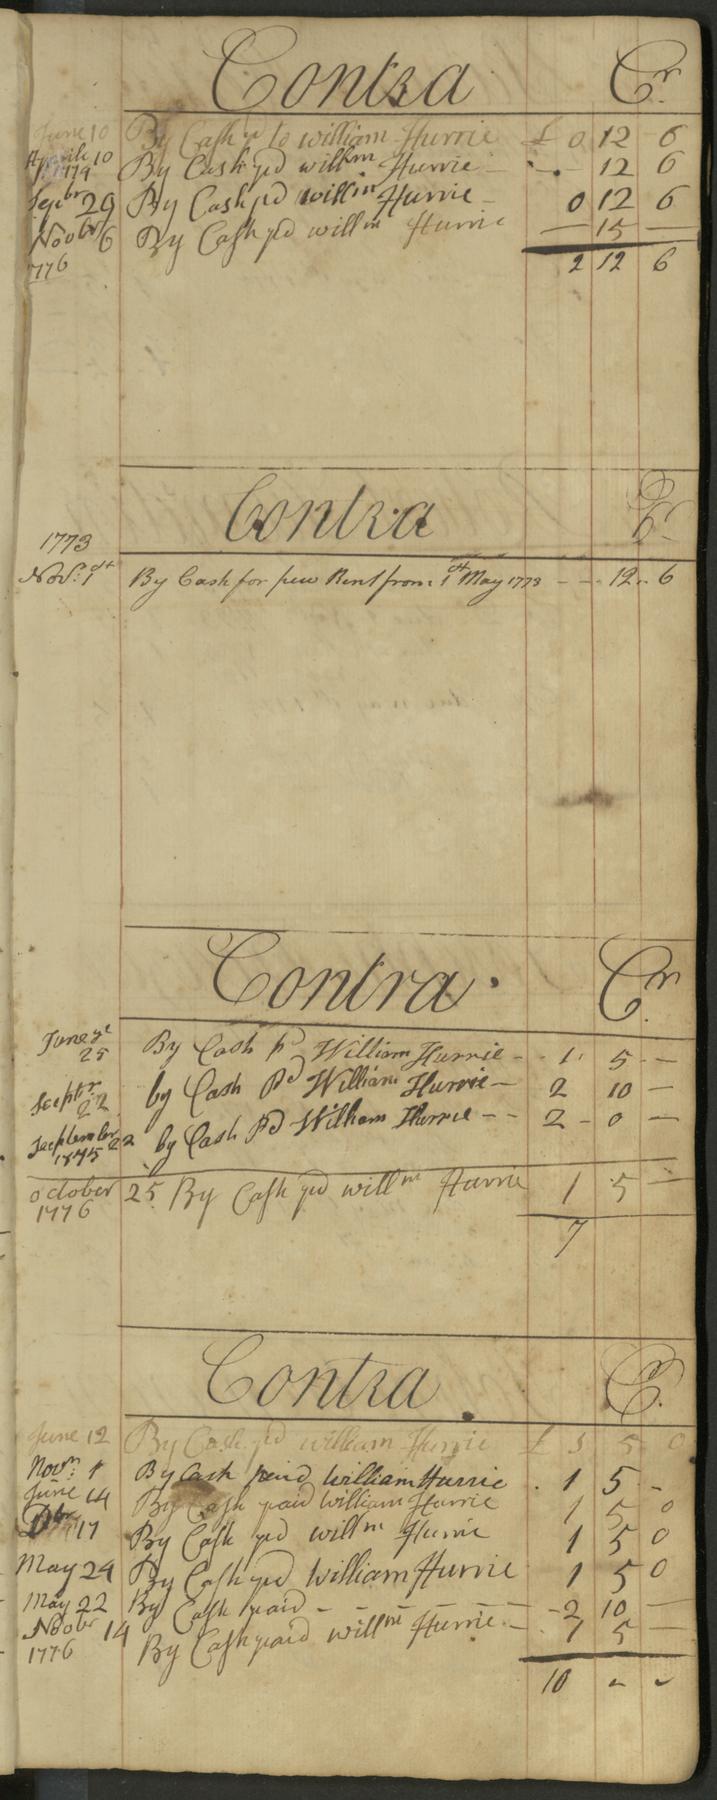 Contra Cr.
June 10 By Cash pd to william Hurrie £ 0 12 6
Aprile 10 1774 By Cash pd willm Hurrie - 12 6
Sepbr 29 By Cash pd willm Hurrie - 0 12 6
Noobr 6 By Cash pd willm Hurrie — 15 —
1776 2 12 6
Contra Cr
1773
Nov: 1st By Cash for pew Rent from 1st May 1773 - - 12 .. 6
Contra. Cr.
June ye 25 By Cash pd William Hurrie - 1 5 —
Septbr 22 by Cash Pd William Hurrie — 2 10 —
September 22 1775 by Cash Pd William Hurrie - - 2 - 0 —
october 25 By Cash pd willm Hurrie 1 5 —
1776
7
Contra Cr.
June 12 By Cash pd william Hurrie £ 5 0
Novm: 1 By Cash paid William Hurrie . 1 5 -
June 14 By Cash paid William Hurrie 1 5 0
Dbr 17 By Cash pd willm Hurrie 1 5 0
May 24 By Cash pd William Hurrie 1 5 0
May 22 By Cash paid - - - - - - 2 10 —
Noobr 14 By Cash paid willm Hurrie - 1 5 —
1776
10 - -